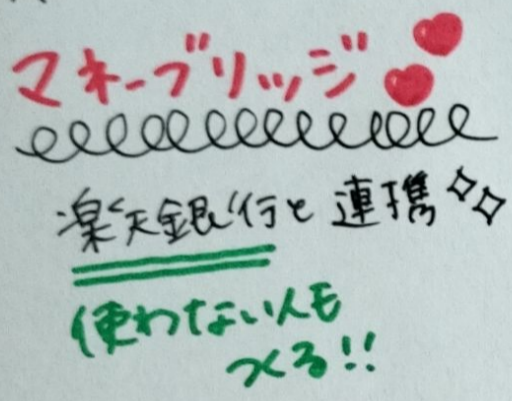 マネーブリッジ
楽天銀行と連携
使わない人も
つくる!!